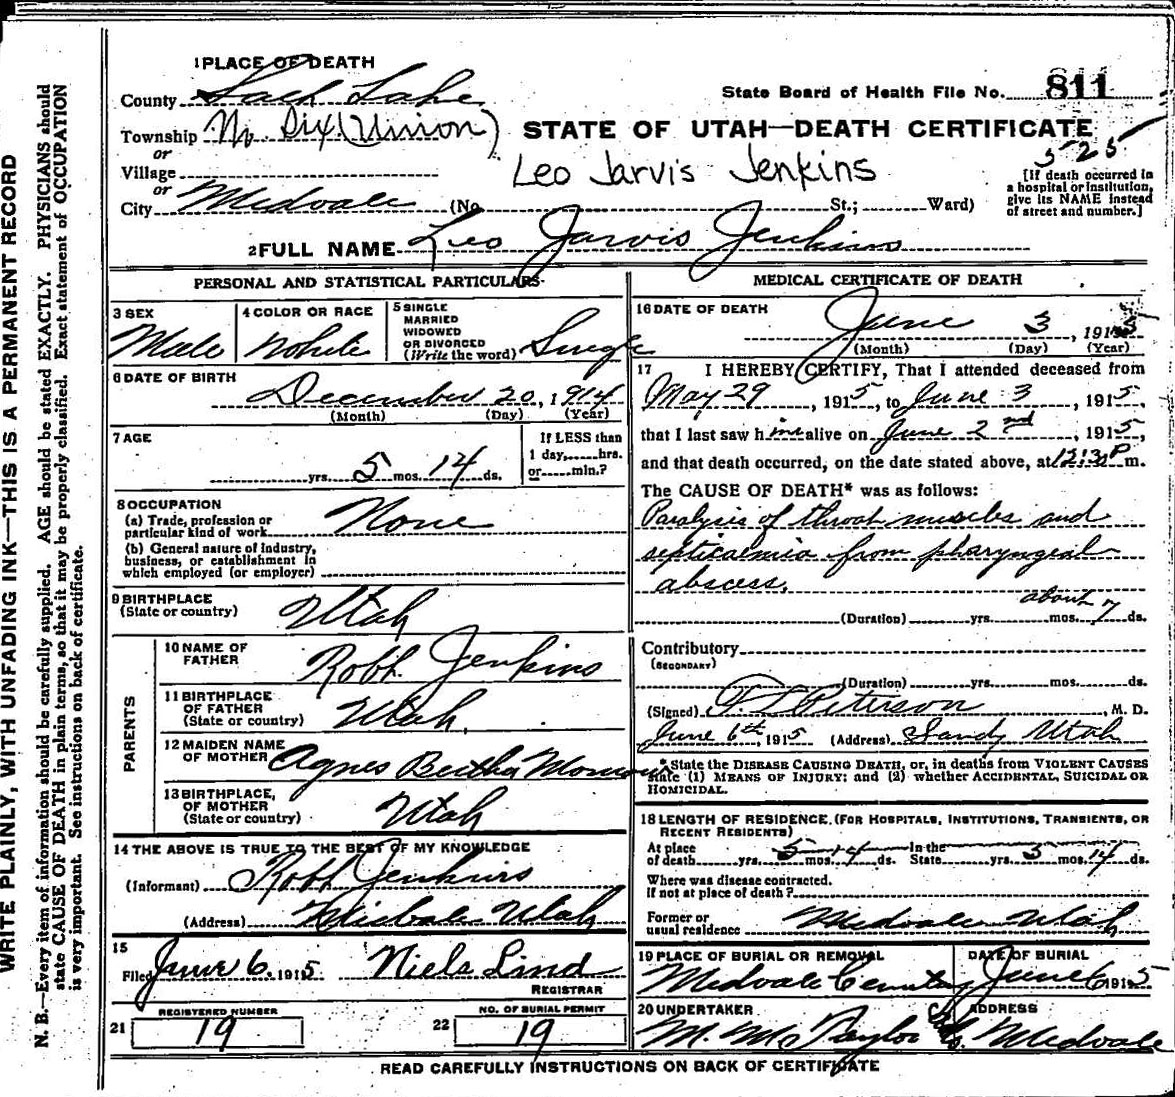 1 PLACE OF DEATH
County Salt Lake
State Board of Health File No. 811
Township No. Six (Union)
STATE OF UTAH—DEATH CERTIFICATE
525
or
Village
Leo Jarvis Jenkins
[If death occurred in a hospital or institution, give its NAME instead of street and number.]
or
City Midvale (No. St.; Ward)
2 FULL NAME Leo Jarvis Jenkins
PERSONAL AND STATISTICAL PARTICULARS
3 SEX
Male
4 COLOR OR RACE
White
5 SINGLE
MARRIED
WIDOWED
OR DIVORCED
(Write the word) Single
6 DATE OF BIRTH
December 20, 1914
(Month) (Day) (Year)
7 AGE
yrs. 5 mos. 14 ds.
If LESS than
1 day, hrs.
or min.?
8 OCCUPATION
(a) Trade, profession or
particular kind of work None
(b) General nature of industry,
business, or establishment in
which employed (or employer)
9 BIRTHPLACE
(State or country) Utah
PARENTS
10 NAME OF
FATHER Robt. Jenkins
11 BIRTHPLACE
OF FATHER
(State or country) Utah
12 MAIDEN NAME
OF MOTHER Agnes Bertha
13 BIRTHPLACE,
OF MOTHER
(State or country) Utah
14 THE ABOVE IS TRUE TO THE BEST OF MY KNOWLEDGE
(Informant) Robt Jenkins
(Address) Midvale Utah
15
Filed June 6, 1915 Niels Lind
REGISTRAR
REGISTERED NUMBER
21 19
NO. OF BURIAL PERMIT
22 19
MEDICAL CERTIFICATE OF DEATH
16 DATE OF DEATH
June 3, 1915
(Month) (Day) (Year)
17 I HEREBY CERTIFY, That I attended deceased from
May 29, 1915, to June 3, 1915,
that I last saw him alive on June 2nd, 1915,
and that death occurred, on the date stated above, at 12:30 P m.
The CAUSE OF DEATH* was as follows:
Paralysis of throat muscles and
septicaemia from pharyngeal
abscess.
(Duration) yrs. mos. about 7 ds.
Contributory
(SECONDARY)
(Duration) yrs. mos. ds.
(Signed) Peterson, M. D.
June 6th, 1915 (Address) Sandy Utah
*State the DISEASE CAUSING DEATH, or, in deaths from VIOLENT CAUSES
state (1) MEANS OF INJURY; and (2) whether ACCIDENTAL, SUICIDAL OR
HOMICIDAL.
18 LENGTH OF RESIDENCE. (FOR HOSPITALS, INSTITUTIONS, TRANSIENTS, OR
RECENT RESIDENTS)
At place
of death yrs. 5 mos. 14 ds. In the State yrs. 5 mos. 14 ds.
Where was disease contracted.
If not at place of death?
Former or
usual residence Midvale Utah
19 PLACE OF BURIAL OR REMOVAL
Midvale Cemetery
DATE OF BURIAL
June 6 1915
20 UNDERTAKER
M. M. Taylor
ADDRESS
Midvale
READ CAREFULLY INSTRUCTIONS ON BACK OF CERTIFICATE
WRITE PLAINLY, WITH UNFADING INK—THIS IS A PERMANENT RECORD
N. B.—Every item of information should be carefully supplied. AGE should be stated EXACTLY. PHYSICIANS should
state CAUSE OF DEATH in plain terms, so that it may be properly classified. Exact statement of OCCUPATION
is very important. See instructions on back of certificate.